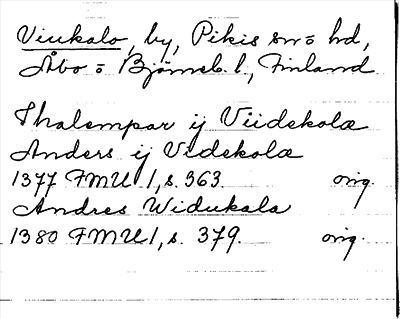 Viukalo, by, Pikis sn o hd,
Åbo o Björneb. l., Finland
Thalempar ij Viidekola
Anders ij Videkola
1377 FMU 1, s. 363. orig.
Andres Widukala
1380 FMU 1, s. 379. orig.